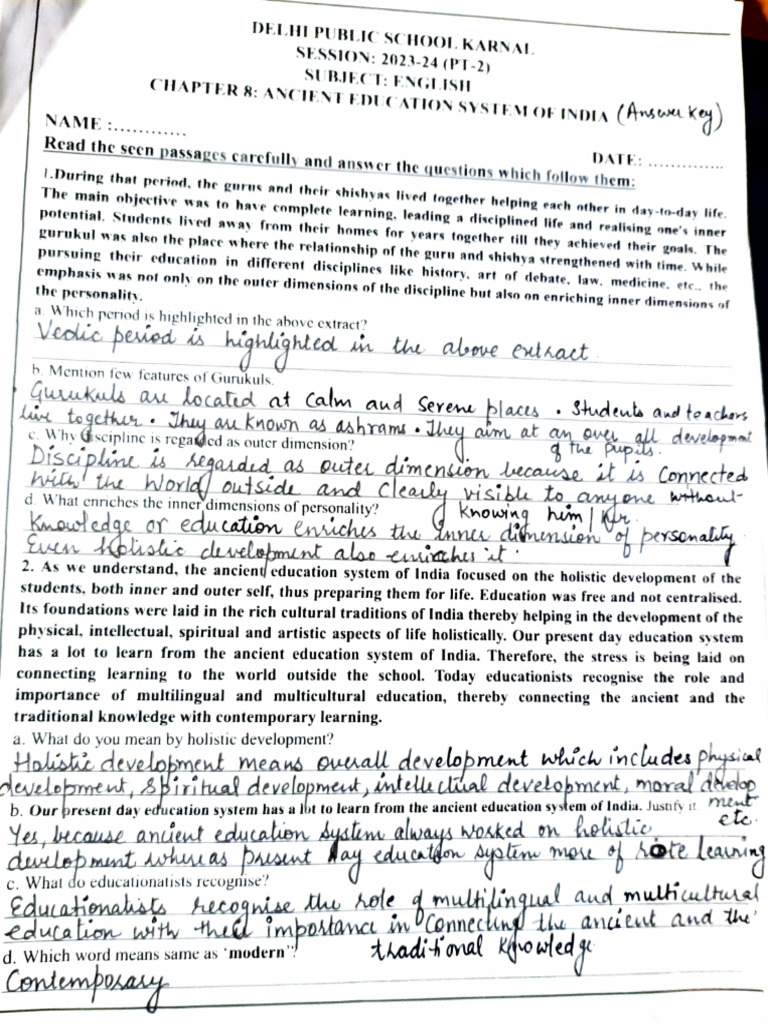 DELHI PUBLIC SCHOOL KARNAL
SESSION: 2023-24 (PT-2)
SUBJECT: ENGLISH
CHAPTER 8: ANCIENT EDUCATION SYSTEM OF INDIA (Answer Key)
NAME :............
DATE: ..............
Read the seen passages carefully and answer the questions which follow them:
1.During that period, the gurus and their shishyas lived together helping each other in day-to-day life.
The main objective was to have complete learning, leading a disciplined life and realising one's inner
potential. Students lived away from their homes for years together till they achieved their goals. The
gurukul was also the place where the relationship of the guru and shishya strengthened with time. While
pursuing their education in different disciplines like history, art of debate, law, medicine, etc., the
emphasis was not only on the outer dimensions of the discipline but also on enriching inner dimensions of
the personality.
a. Which period is highlighted in the above extract?
Vedic period is highlighted in the above extract
b. Mention few features of Gurukuls.
Gurukuls are located at calm and serene places . Students and teachers
live together . They are known as ashrams . They aim at an over all development
of the pupils.
c. Why discipline is regarded as outer dimension?
Discipline is regarded as outer dimension because it is connected
with the world outside and clearly visible to anyone without
knowing him/her.
d. What enriches the inner dimensions of personality?
Knowledge or education enriches the inner dimension of personality.
Even Holistic development also enriches it .
2. As we understand, the ancient education system of India focused on the holistic development of the
students, both inner and outer self, thus preparing them for life. Education was free and not centralised.
Its foundations were laid in the rich cultural traditions of India thereby helping in the development of the
physical, intellectual, spiritual and artistic aspects of life holistically. Our present day education system
has a lot to learn from the ancient education system of India. Therefore, the stress is being laid on
connecting learning to the world outside the school. Today educationists recognise the role and
importance of multilingual and multicultural education, thereby connecting the ancient and the
traditional knowledge with contemporary learning.
a. What do you mean by holistic development?
Holistic development means overall development which includes physical
development, Spiritual development, intellectual development, moral develop
ment etc.
b. Our present day education system has a lot to learn from the ancient education system of India. Justify it
Yes, because ancient education system always worked on holistic
development whereas present day education system more of rote learning
c. What do educationalists recognise?
Educationalists recognise the role of multilingual and multicultural
education with their importance in connecting the ancient and the
traditional knowledge
d. Which word means same as 'modern''?
Contemporary